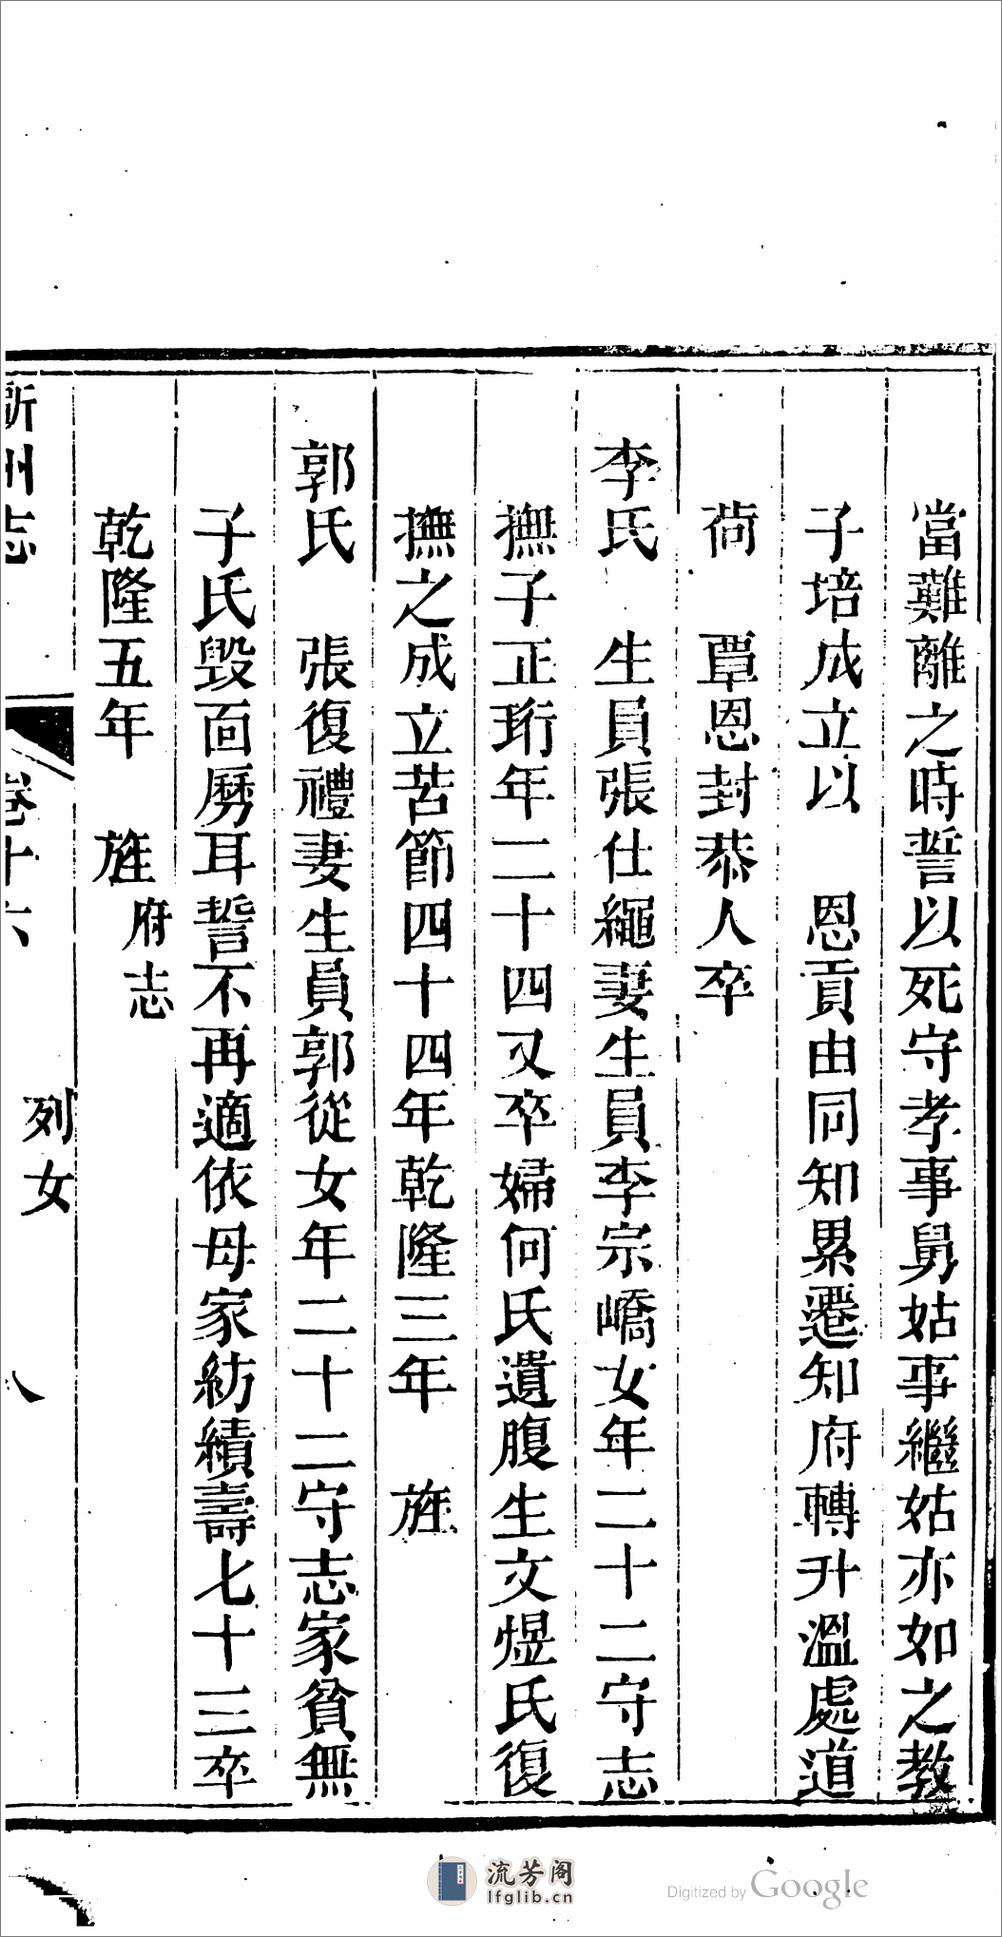 當難離之時誓以死守孝事舅姑事繼姑亦如之教
子培成立以 恩貢由同知累遷知府轉升溫處道
荷 覃恩封恭人卒
李氏 生員張仕繩妻生員李宗嶠女年二十二守志
撫子正珩年二十四又卒婦何氏遺腹生文煜氏復
撫之成立苦節四十四年乾隆三年 旌
郭氏 張復禮妻生員郭從女年二十二守志家貧無
子氏毀面劈耳誓不再適依母家紡績壽七十三卒
乾隆五年 旌 府志
州志 卷十六 列女 八
流芳阁
lfglib.cn
Digitized by Google